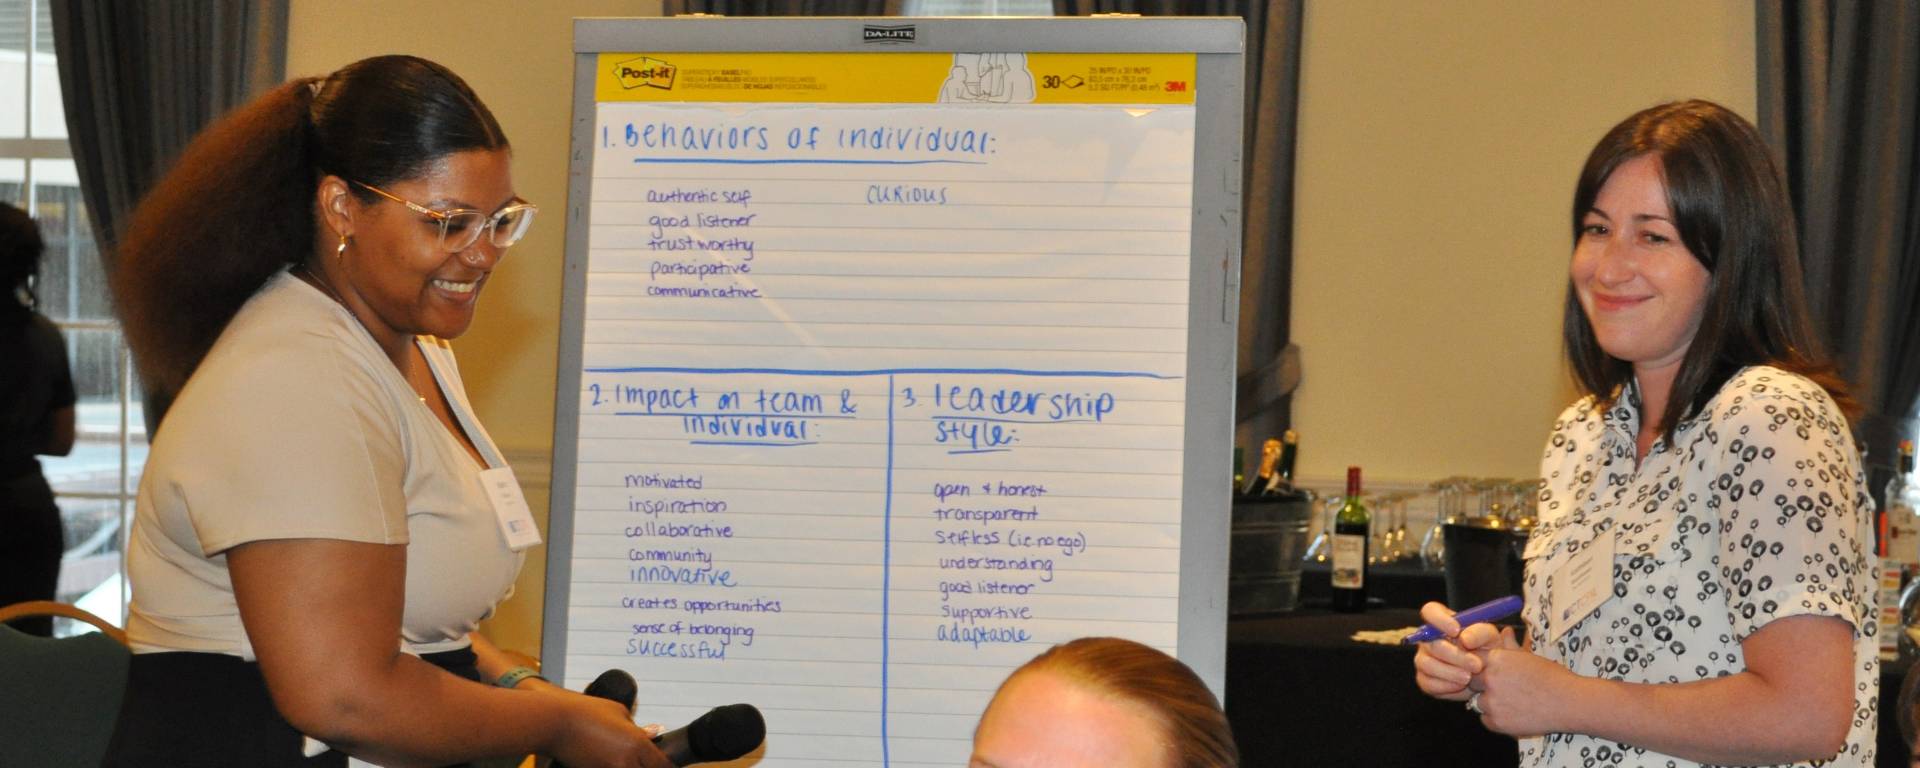 DA-LITE
Post-it
30
3M
1. Behaviors of individual:
authentic self
curious
good listener
trustworthy
participative
communicative
2. Impact on team &
individual:
motivated
inspiration
collaborative
community
innovative
creates opportunities
sense of belonging
successful
3. leadership
style:
open + honest
transparent
selfless (i.e. no ego)
understanding
good listener
supportive
adaptable